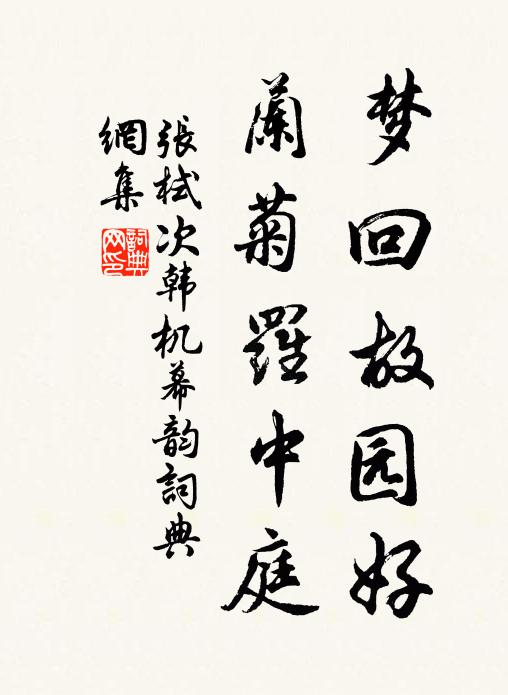 梦回故园好
蘭菊羅中庭
張栻次韩机幕韵詞典
網集
詞典
网印